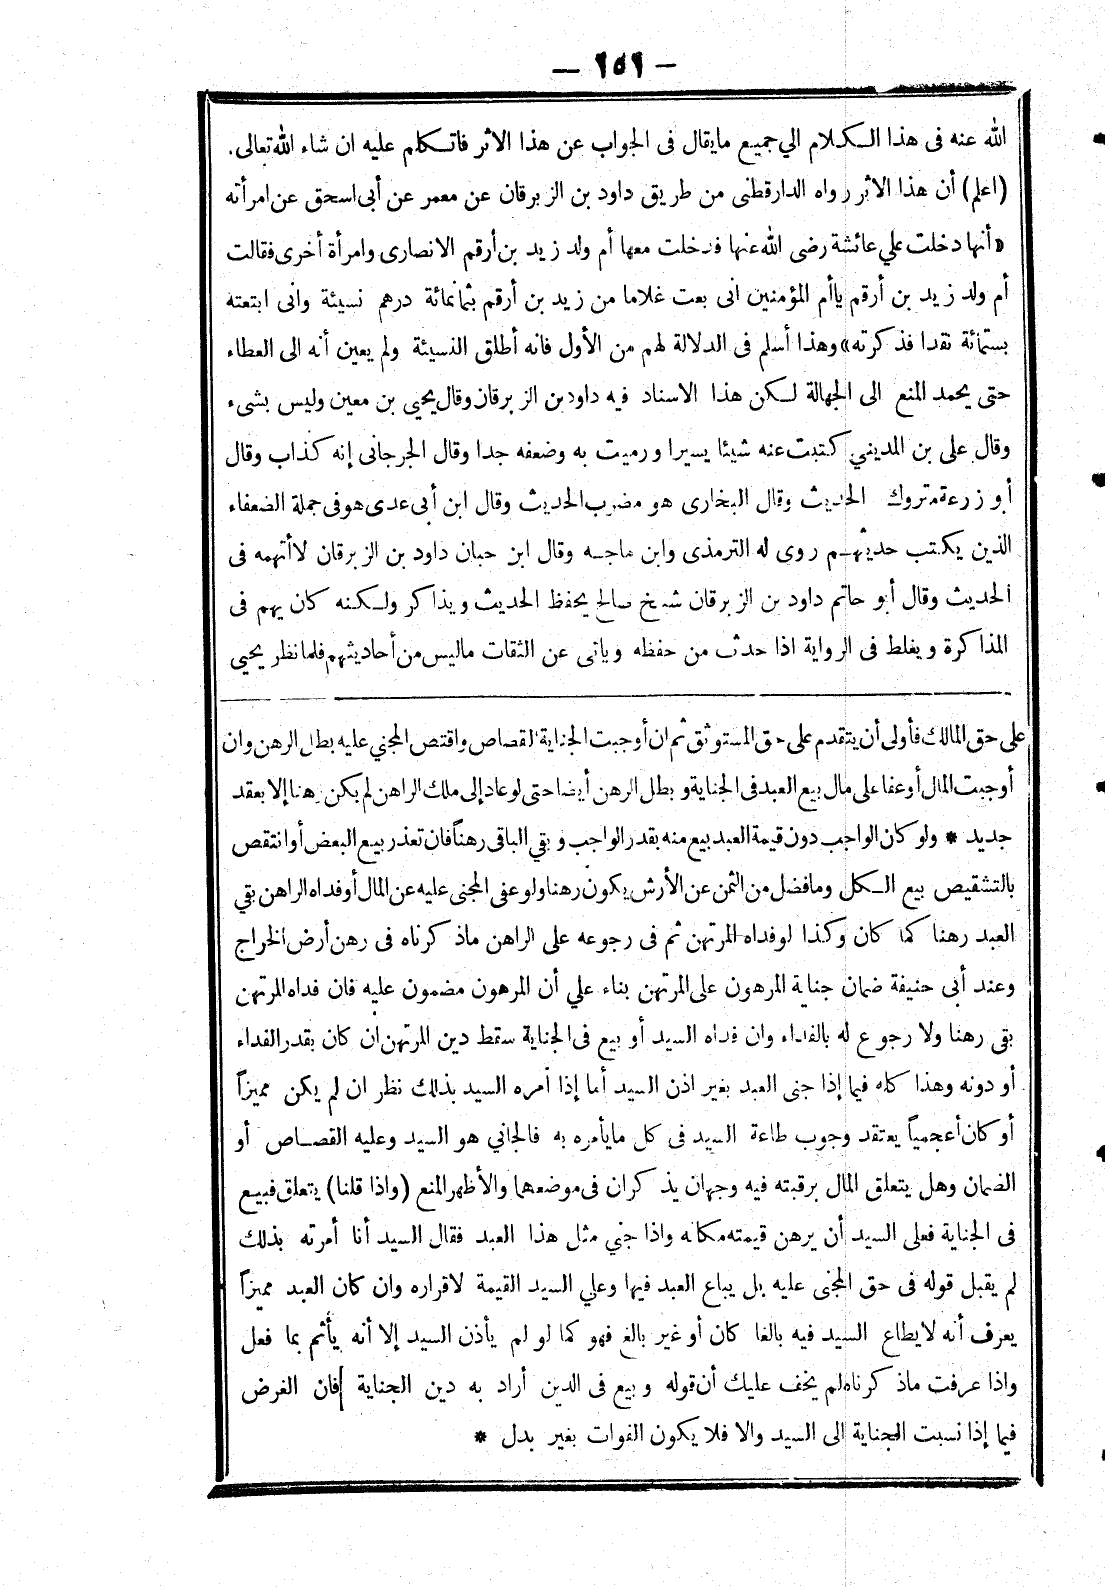 — ١٥٩ —
الله عنه فى هذا الكلام الي جميع مايقال فى الجواب عن هذا الاثر فاتكلم عليه ان شاء الله تعالى.
(اعلم) أن هذا الاثر رواه الدارقطنى من طريق داود بن الزبرقان عن معمر عن أبى اسحق عن امرأته
«أنها دخلت علي عائشة رضى الله عنها فدخلت معها أم ولد زيد بن أرقم الانصارى وامرأة أخرى فقالت
أم ولد زيد بن أرقم ياأم المؤمنين انى بعت غلاما من زيد بن أرقم بثمانمائة درهم نسيئة وانى ابتعته
بستمائة نقدا فذكرته» وهذا أسلم فى الدلالة لهم من الأول فانه أطلق النسيئة ولم يعين أنه الى العطاء
حتى يحمد المنع الى الجهالة لكن هذا الاسناد فيه داود بن الزبرقان وقال يحيى بن معين وليس بشىء
وقال على بن المديني كتبت عنه شيئا يسيرا ورميت به وضعفه جدا وقال الجرجانى إنه كذاب وقال
أبو زرعة متروك الحديث وقال البخارى هو مضرب الحديث وقال ابن أبى عدى هو فى جملة الضعفاء
الذين يكتب حديثهم روى له الترمذى وابن ماجه وقال ابن حبان داود بن الزبرقان لا أتهمه فى
الحديث وقال أبو حاتم داود بن الزبرقان شيخ صالح يحفظ الحديث ويذاكر ولكنه كان يهم فى
المذاكرة ويغلط فى الرواية اذا حدث من حفظه وياتى عن الثقات ماليس من أحاديثهم فلما نظر يحيى
على حق المالك فأولى أن يتقدم على حق المستوثق ثم ان أوجبت الجناية القصاص واقتص المجني عليه بطل الرهن وان
أوجبت المال أو عفا على مال بيع العبد فى الجناية وبطل الرهن أيضا حتى لو عاد إلى ملك الراهن لم يكن رهنا إلا بعقد
جديد * ولو كان الواجب دون قيمة العبد بيع منه بقدر الواجب وبقي الباقى رهناً فان تعذر بيع البعض أو انتقص
بالتشقيص بيع الكل ومافضل من الثمن عن الأرش يكون رهنا ولو عفى المجنى عليه عن المال أو فداه الراهن بقي
العبد رهنا كما كان وكذا لو فداه المرتهن ثم فى رجوعه على الراهن ماذكرناه فى رهن أرض الخراج
وعند أبى حنيفة ضمان جناية المرهون على المرتهن بناء علي أن المرهون مضمون عليه فان فداه المرتهن
بقى رهنا ولا رجوع له بالفداء وان فداه السيد أو بيع فى الجناية سقط دين المرتهن ان كان بقدر الفداء
أو دونه وهذا كله فيما إذا جنى العبد بغير اذن السيد أما إذا أمره السيد بذلك نظر ان لم يكن مميزاً
أو كان أعجمياً يعتقد وجوب طاعة السيد فى كل مايأمره به فالجاني هو السيد وعليه القصاص أو
الضمان وهل يتعلق المال برقبته فيه وجهان يذكران فى موضعهما والأظهر المنع (واذا قلنا) يتعلق فبيع
فى الجناية فعلى السيد أن يرهن قيمته مكانه واذا جني مثل هذا العبد فقال السيد أنا أمرته بذلك
لم يقبل قوله فى حق المجنى عليه بل يباع العبد فيها وعلي السيد القيمة لاقراره وان كان العبد مميزاً
يعرف أنه لايطاع السيد فيه بالغا كان أو غير بالغ فهو كما لو لم يأذن السيد إلا أنه يأثم بما فعل
واذا عرفت ماذكرناه لم يخف عليك أن قوله وبيع فى الدين أراد به دين الجناية فان الغرض
فيما إذا نسبت الجناية الى السيد والا فلا يكون الفوات بغير بدل *